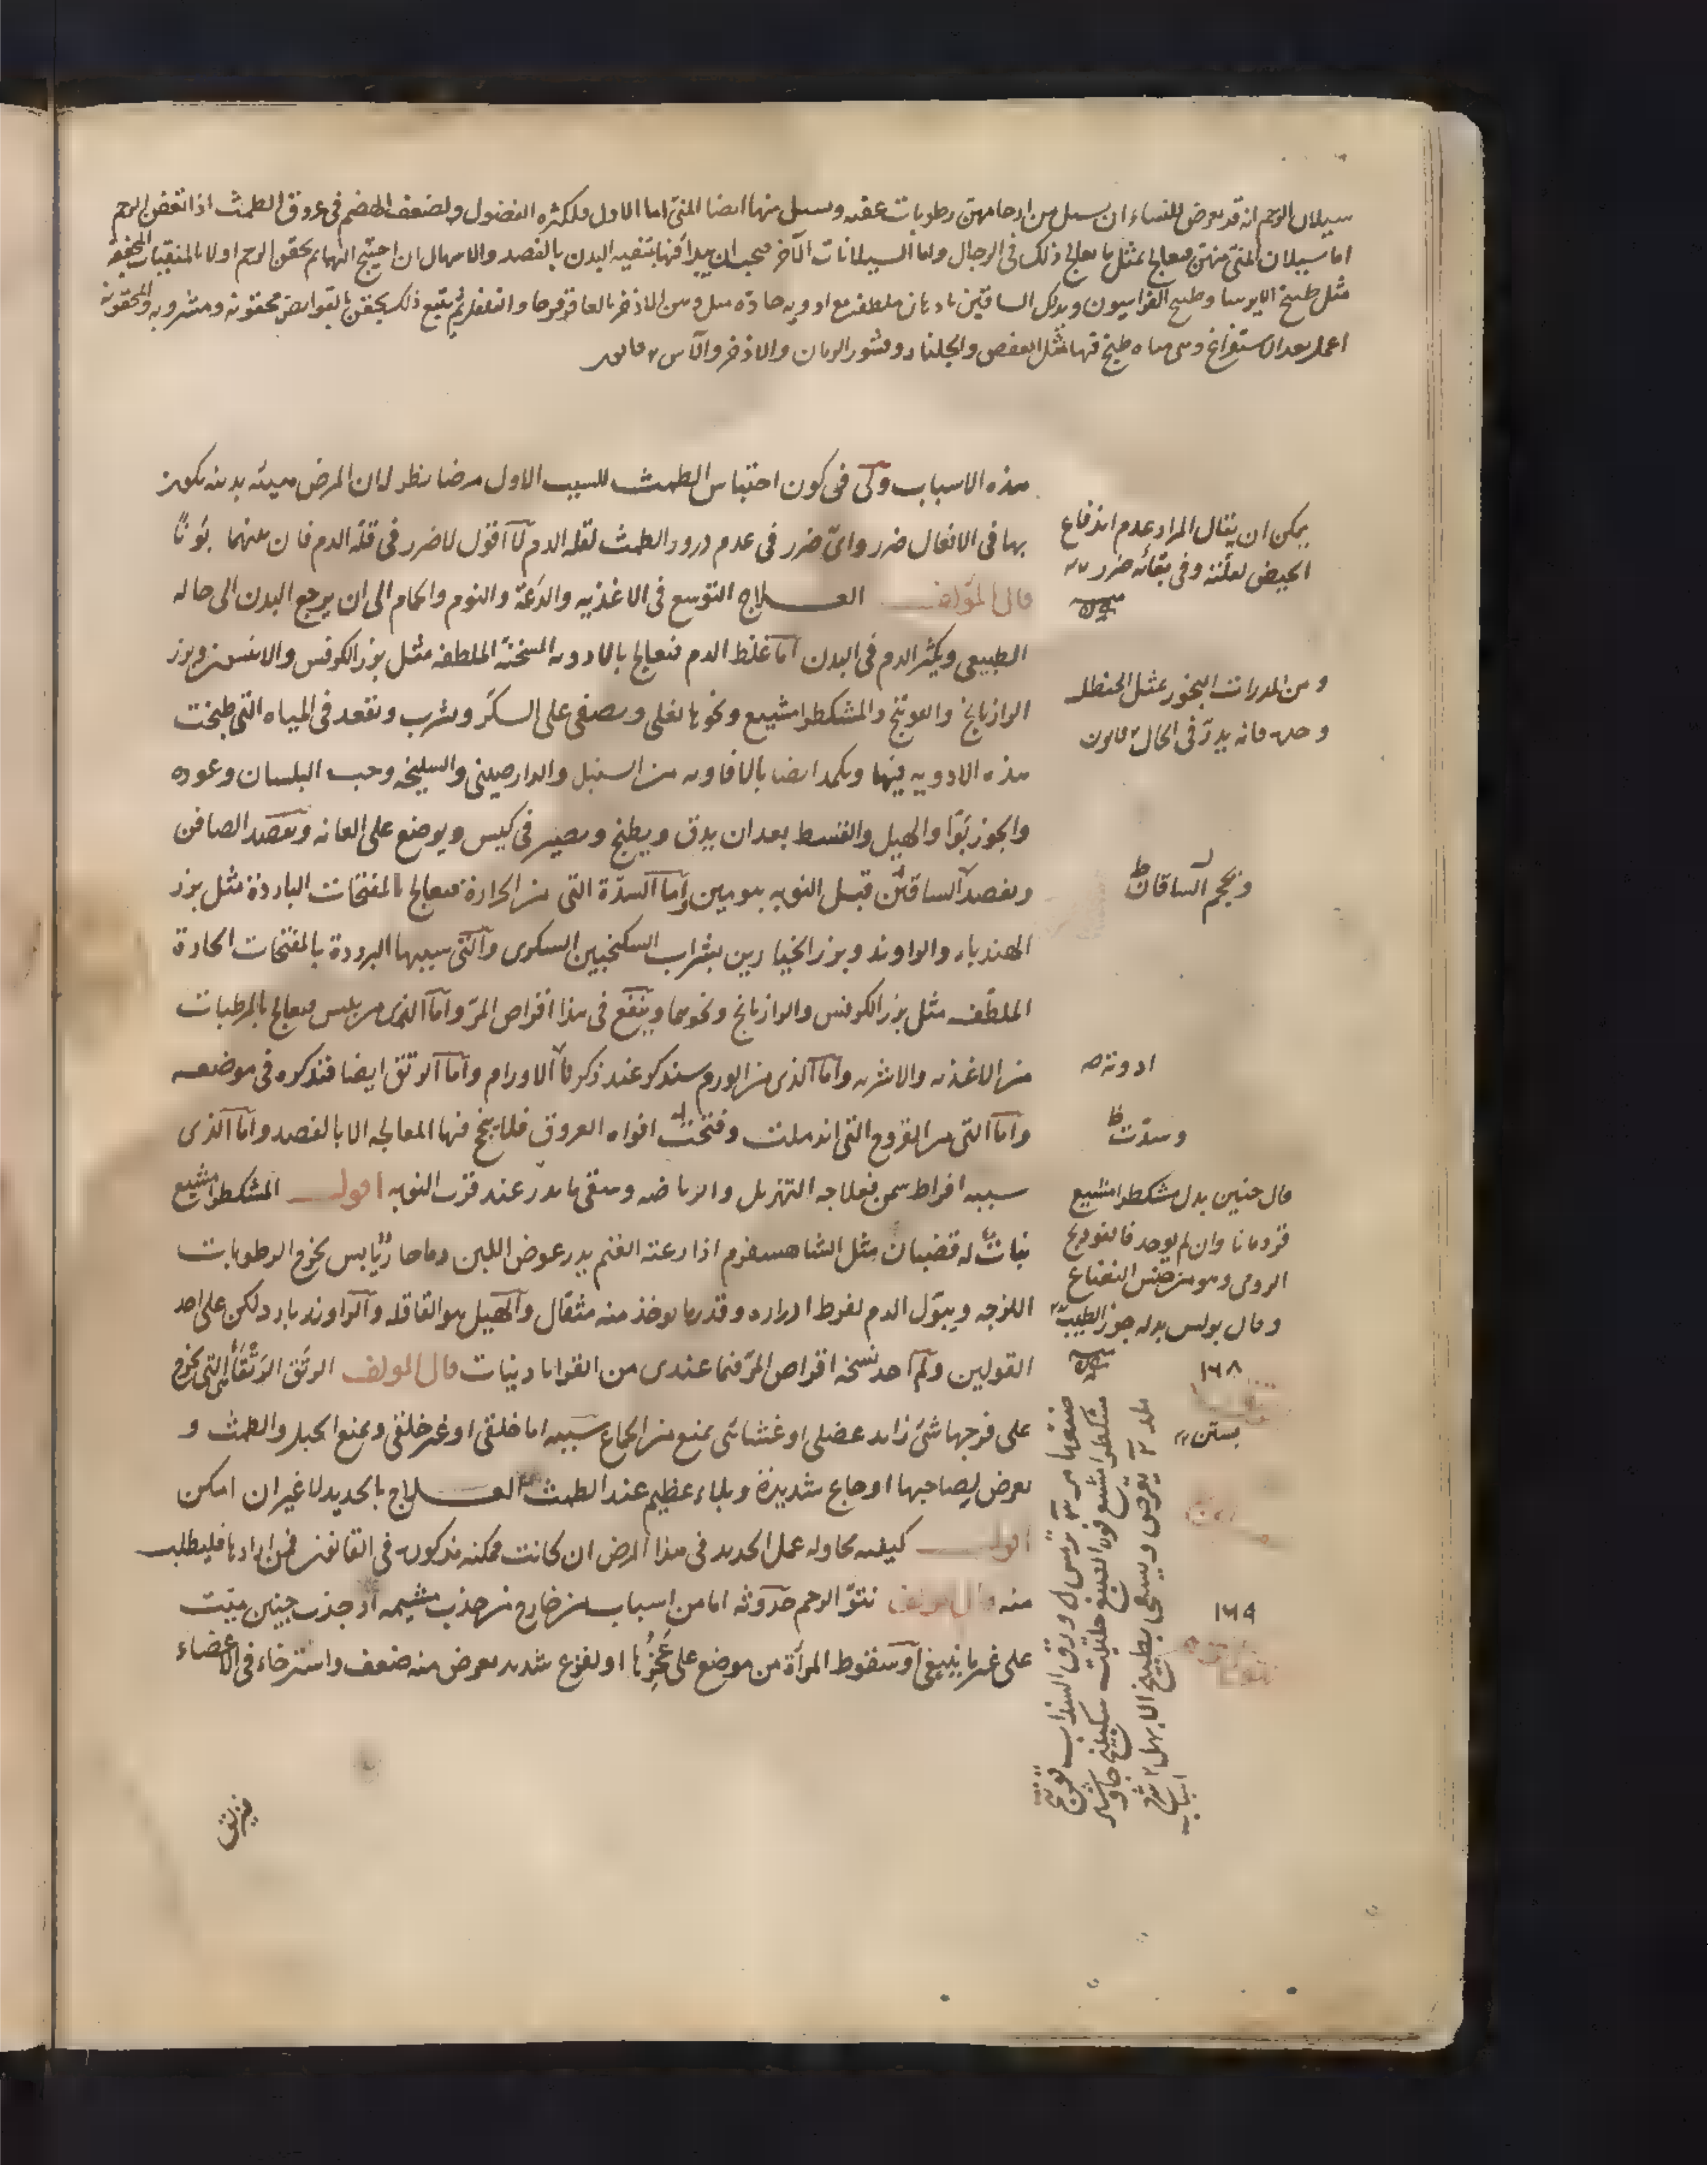 سيلان الرحم انه قد يعرض للنساء ان يسيل من ارحامهن رطوبات عفنه ويسيل منها ايضا المنى اما الاول فلكثرة الفضول ولضعف الهضم فى عروق الطمث اذا تعفن الرحم
اما سيلان المنى منهن فيعالج بمثل ما يعالج ذلك فى الرجال واما السيلانات الآخر فيجب ان يبدأ فيها بتنقيه البدن بالفصد والاسهال ان احتيج اليهما ثم يحقن الرحم اولا بالمنقيات المجففه
مثل طبيخ الايرسا وطبيخ الفراسيون ويدلك الساقين بادهان ملطفه مع ادويه حاده مثل دهن الاذخر بالعاقرقرحا والفلفل ثم يتبع ذلك يحقن بالقوابض محقونه ومشروبه والمحقونه
اعمل بعد الاستفراغ وهى مياه طبخ فيها مثل العفص والجلنار وقشور الرمان والاذخر والآس قانون
هذه الاسباب وكى فى كون احتباس الطمث للسبب الاول مرضا نظر لان المرض هيئه بدنيه يكون
بها فى الافعال ضرر واىّ ضرر فى عدم درور الطمث لقله الدم لا اقول لا ضرر فى قله الدم فان بينهما بونًا
قال المؤلف العلاج التوسع فى الاغذيه والدَعَة والنوم والحمام الى ان يرجع البدن الى حاله
الطبيعى ويكثر الدم فى البدن اما غلظ الدم فيعالج بالادويه المسخنة الملطفه مثل بزر الكرفس والانيسون وبزر
الرازيانج والفوتنج والمشكطرامشيع ونحوها يغلى ويصفى على السكر ويشرب وتقعد فى المياه التى طبخت
هذه الادويه فيها ويكمد ايضا بالافاويه من السنبل والدارصينى والسليخه وحب البلسان وعوده
والجوزبوّا والهيل والقسط بعد ان يدق ويطبخ ويصير فى كيس ويوضع على العانه ويفصد الصافن
ويفصد الساقين قبل النوبه بيومين واما السدّة التى من الحرارة فيعالج بالمفتحات الباردة مثل بزر
الهندباء والراوند وبزر الخيارين بشراب السكنجبين السكرى والتى سببها البرودة بالمفتحات الحادة
الملطّفه مثل بزر الكرفس والرازيانج ونحوهما وينفع فى هذا اقراص المرّ واما الذى من يبس فيعالج بالمرطبات
من الاغذيه والاشربه واما الذى من الورم سنذكر عند ذكرنا الاورام واما الرتق ايضا فنذكره فى موضعه
واما التى من القروح التى اندملت وفتحت افواه العروق فلا ينجح فيها المعالجه الا بالفصد واما الذى
سببه افراط سمن فعلاجه التهزيل والرياضه وسقى ما يدر عند قرب النوبه اقول المشكطرامشيع
نبات له قضبان مثل الشاهسفرم اذا رعته الغنم يدر عوض اللبن دما حارّ يابس يخرج الرطوبات
اللزجه ويبوّل الدم لفرط ادراره وقدر ما يوخذ منه مثقال والهيل هو القاقله والراوند بارد لكن على احد
القولين ولم اجد نسخه اقراص المرّ فيما عندى من القراباديات قال المولف الرتق الرَتْقَاء التى يخرج
على فرجها شئ زايد عضلى او غشائى يمنع من الجماع سببه اما خلقى او غير خلقى ويمنع الحبل والطمث و
يعرض لصاحبها اوجاع شديدة وبلاء عظيم عند الطمث العلاج بالحديد لا غير ان امكن
اقول كيفيه محاوله عمل الحديد فى هذا المرض ان كانت ممكنه مذكوره فى القانون فمن ارادها فليطلب
منه قال المولف نتوّ الرحم حدوثه اما من اسباب من خارج من جذب مشيمه او جذب جنين ميّت
على غير ما ينبغى او سقوط المرأة من موضع على عَجُزُها او لفزع شديد يعرض منه ضعف واسترخاء فى الاعضاء
يمكن ان يقال المراد عدم اندفاع
الحيض لعلته وفى بقائه ضرر
ومن المدرات البخور بمثل الحنظل
وحده فانه يدرّ فى الحال قانون
ويحجم الساقان ظ
ادويته
وسدّت ظ
قال حنين بدل مشكطرامشيع
قردمانا وان لم يوجد فالفودنج
الرومى وهو من جنس النعناع
وقال بولس بدله جوز الطيب
١٦٨
١٦٩